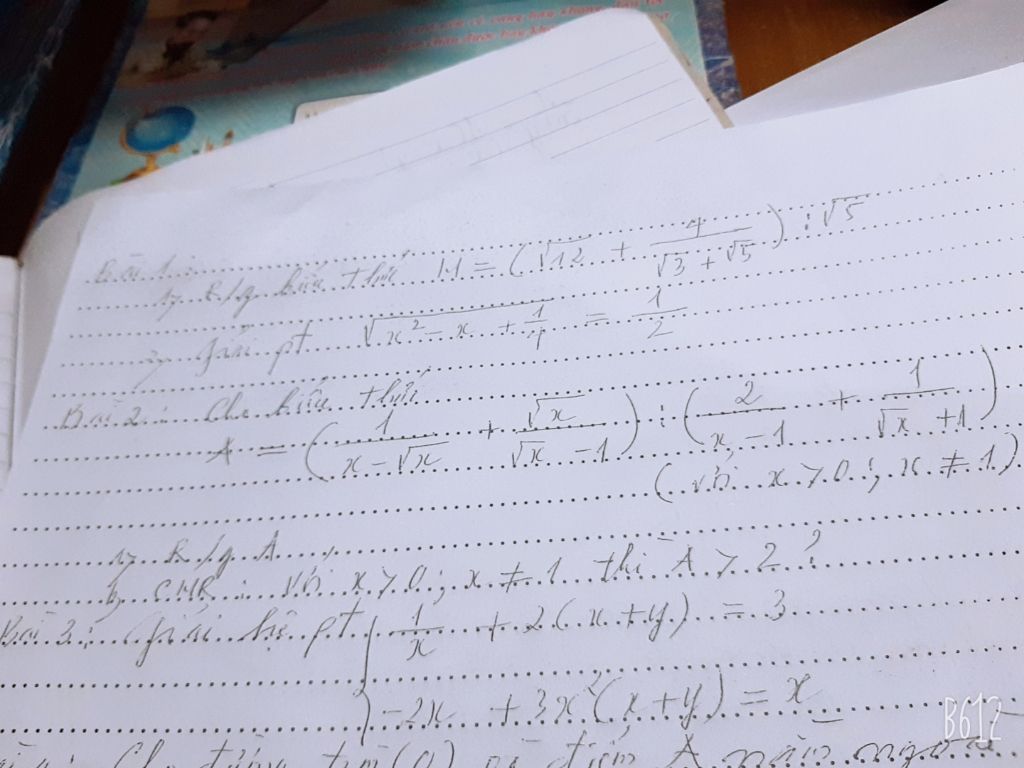 Bài 1:
1, R/g biểu thức M = (√12 + 4/(√3 + √5)) : √5
2, Giải pt √(x² - x + 1/4) = 1/2
Bài 2: Cho biểu thức
A = (1/(x - √x) + √x/(√x - 1)) : (2/(x - 1) + 1/(√x + 1))
(với x > 0; x ≠ 1)
1, R/g A
b, CMR: với x > 0; x ≠ 1 thì A > 2?
Bài 3: Giải hệ pt { 1/x + 2(x + y) = 3
-2x + 3x²(x + y) = x
Cho đường tròn (O) và điểm A nằm ngoài
B612